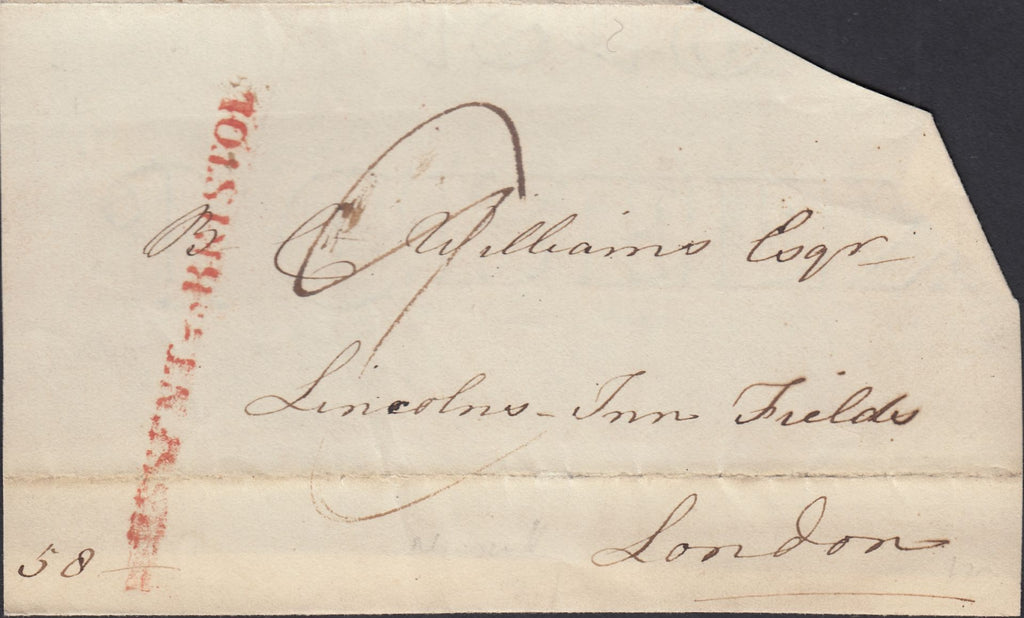 BRISTOL
Williams Esqr
Lincolns-Inn Fields
London
58